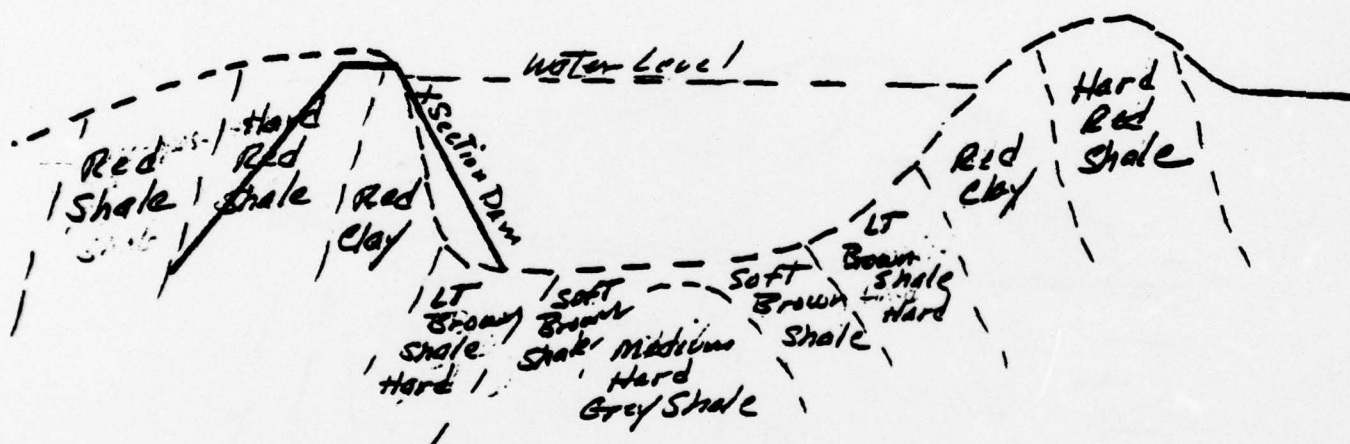 Water Level
Red
Shale
Hard
Red
Shale
Red
Clay
Section Dam
LT
Brown
Shale
Hard
Soft
Brown
Shale
Medium
Hard
Grey Shale
Soft
Brown
Shale
LT
Brown
Shale
Hard
Red
Clay
Hard
Red
Shale